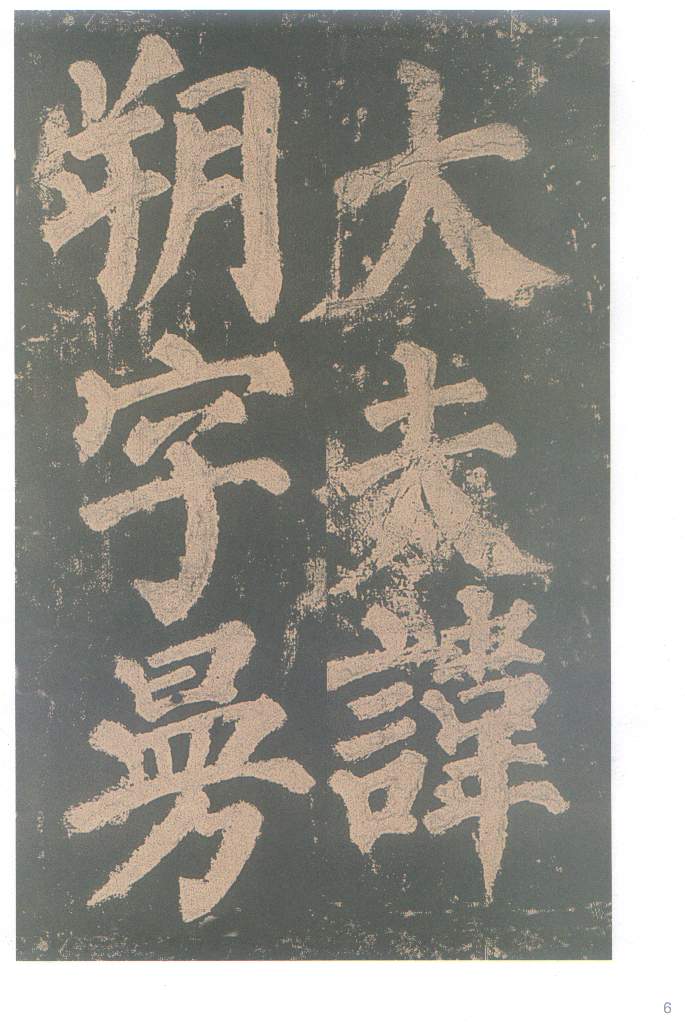 大夫諱
朔字曼
6